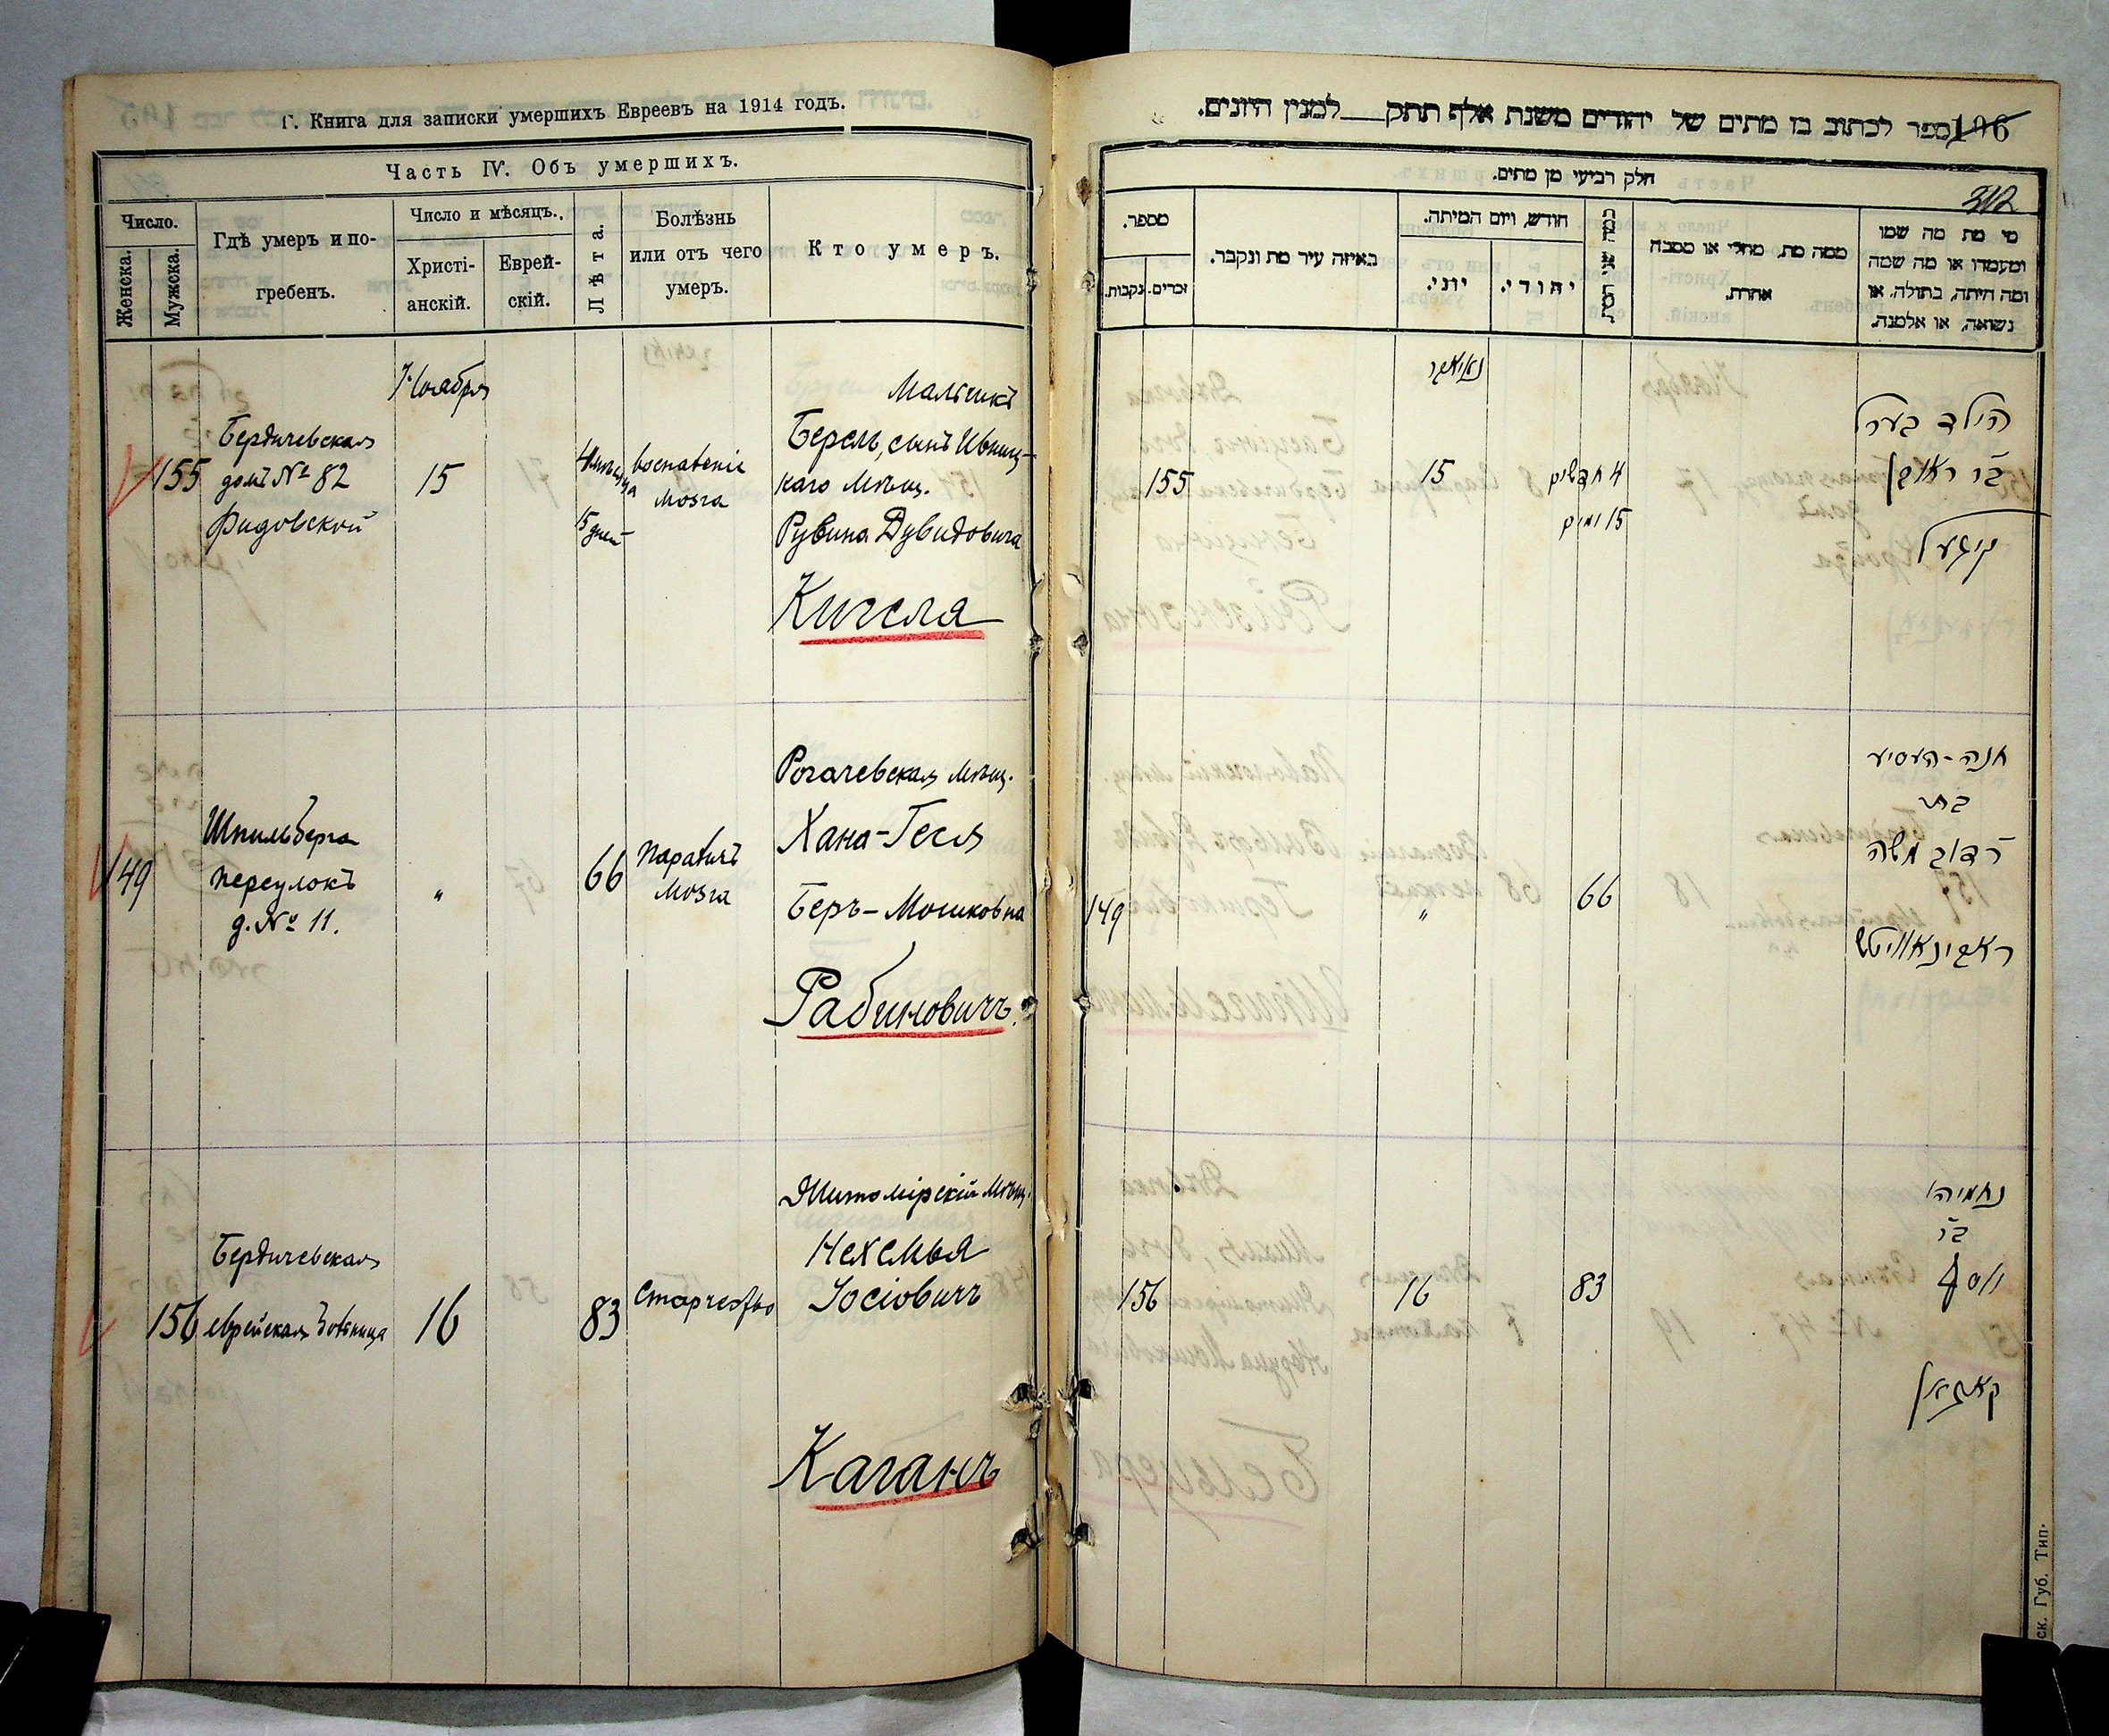 Г. Книга для записки умершихъ Евреевъ на 1914 годъ.
Часть IV. Объ умершихъ.
Число.
Женска.
Мужска.
Гдѣ умеръ и по-
гребенъ.
Число и мѣсяцъ.
Христі-
анскій.
Еврей-
скій.
Лѣта.
Болѣзнь
или отъ чего
умеръ.
Кто умеръ.
Ноября
155
Бердичевская
домъ № 82
15
4 мѣсяца
15 дней
воспаленіе
мозга
Мальчикъ
Берель, сынъ Ивниц-
каго мѣщ.
Рувина Дувидовича
Кигеля
149
Шпильберга
переулокъ
д. № 11.
"
66
Параличъ
мозга
Рогачевская мѣщ.
Хана-Геся
Беръ-Мошковна
Рабиновичъ.
156
Бердичевская
еврейская
16
83
Старчество
Житомірскій мѣщ.
Нехемья
Іосіовичъ
Каганъ
106
ספר לכתוב בו מתים של יהודים משנת אלף תתק למנין היונים.
חלק רביעי מן מתים.
312
מספר.
נקבות.
זכרים.
באיזה עיר מת ונקבר.
חודש, ויום המיתה.
יוני.
יהודי.
ממה מת, מחלי או מסבה
אחרת.
מי מת מה שמו
ומעמדו או מה שמה
ומה היתה, בתולה, או
נשואה, או אלמנה.
155
15
4 חדשים
15 ימים
הילד בערל
ב״ר ראובן
קיגעל
149
"
66
חנה-העסיע
בת
ר׳ דוב משה
ראבינאוויטש
156
16
83
נחמיה
ב״ר
יוסף
קאגאן
ск. Губ. Тип.